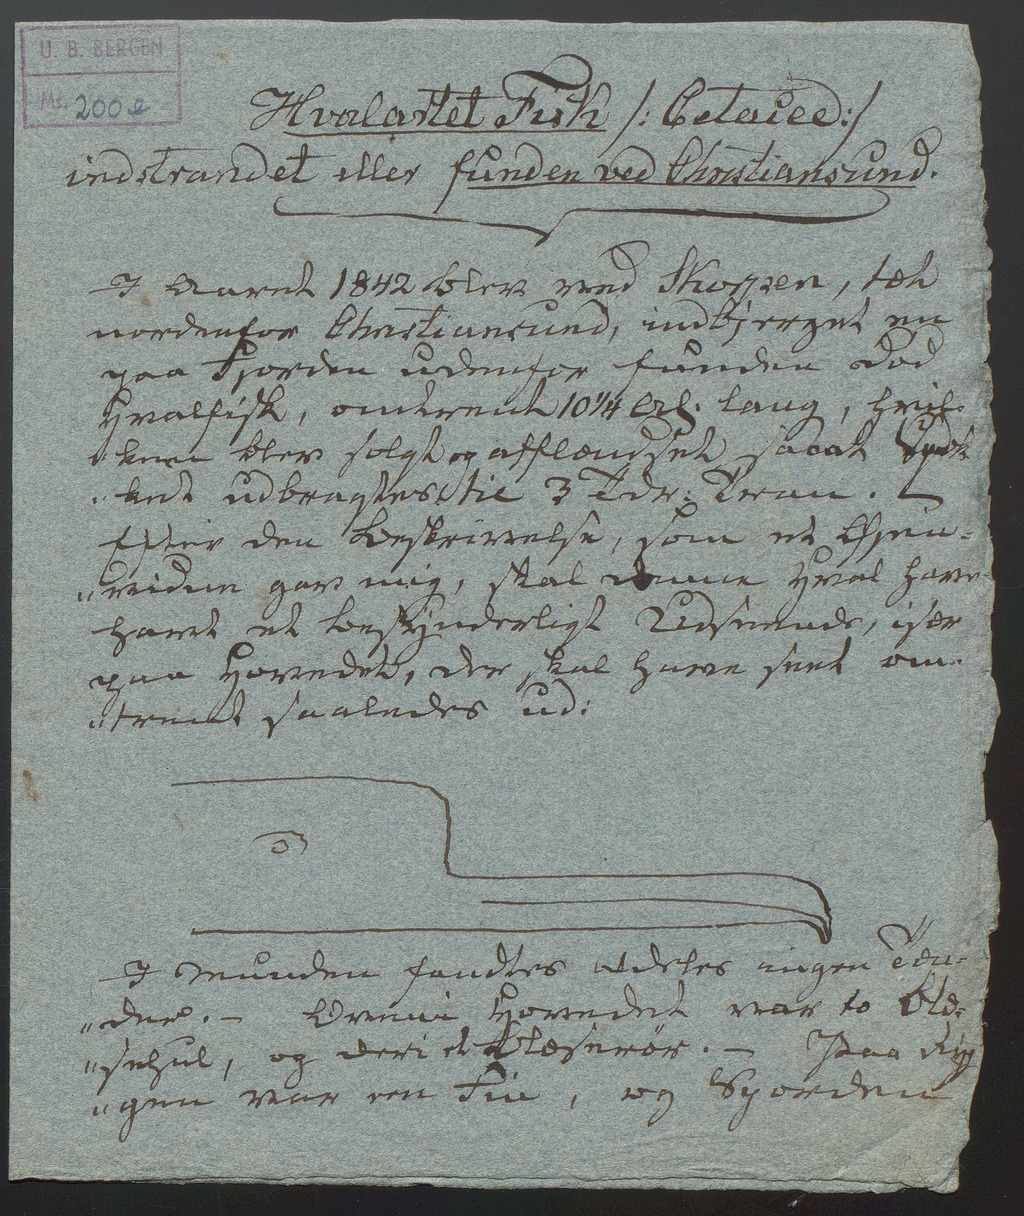 U. B. BERGEN
Ms. 200 e
Hvalartet Fisk /: Cetacee:/
indstrandet eller funden ved Christiansund.
I Aaret 1842 blev ved Skorpen, tæt
nordenfor Christiansund, indbjerget en
paa Fjorden udenfor funden død
Hvalfisk, omtrent 10 1/4 Al. lang, hvil-
"ken blev solgt og afflændset saaat Spæk-
"ket udbragtes til 3 Tdr. Tran. –
Efter den Beskrivelse, som et Øjen-
"vidne gav mig, skal denne Hval have
havt et besynderligt Udseende, især
paa Hovedet, der skal have seet om-
"trent saaledes ud:
I Munden fandtes aldeles ingen Tæn-
"der. – Oveni Hovedet var to Blæ-
"sehul, og deri et Blæserør. – Paa Ryg-
"gen var een Fin, og Sporden